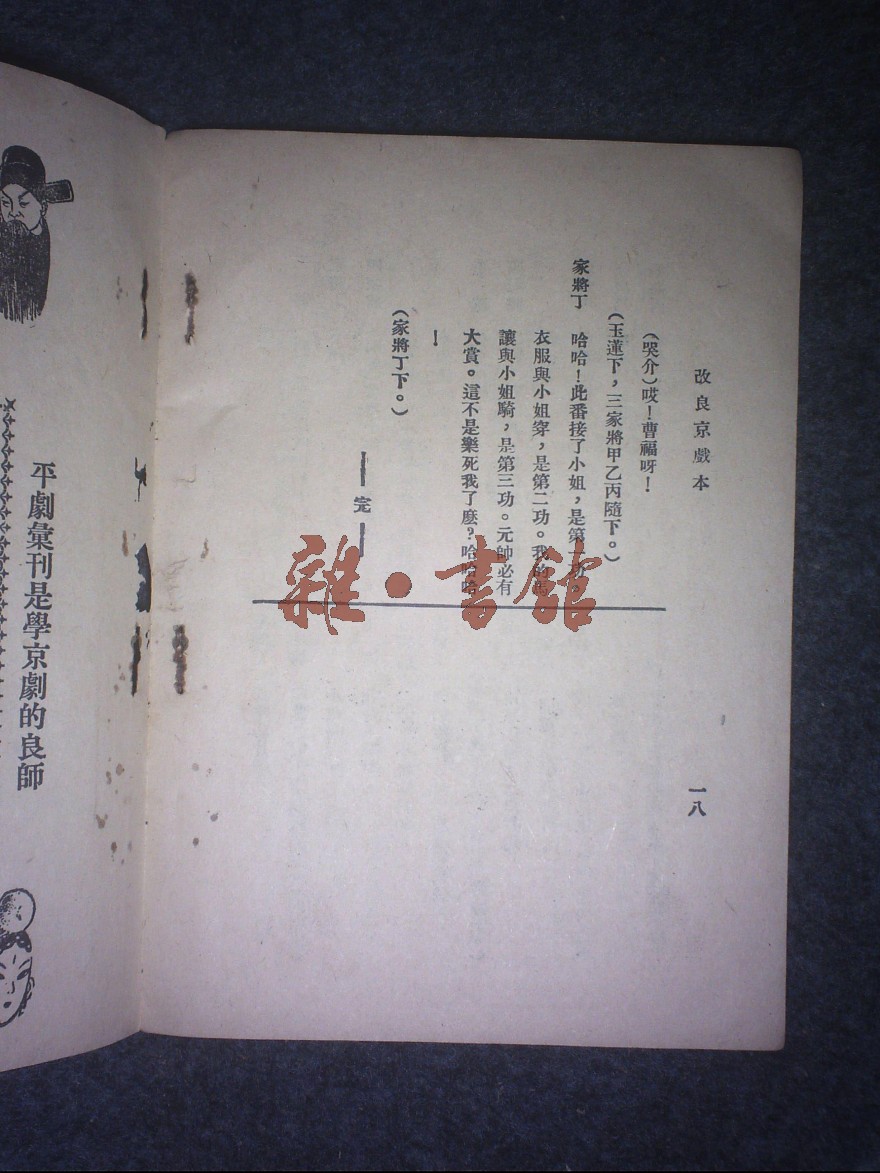 改良京戲本
一八
(哭介)哎!曹福呀!
(玉蓮下,三家將甲乙丙隨下。)
家將丁 哈哈!此番接了小姐,是第一功。
衣服與小姐穿,是第二功。我的馬
讓與小姐騎,是第三功。元帥必有
大賞。這不是樂死我了麽?哈哈哈
!
(家將丁下。)
——完——
雜·書館
平劇彙刊是學京劇的良師